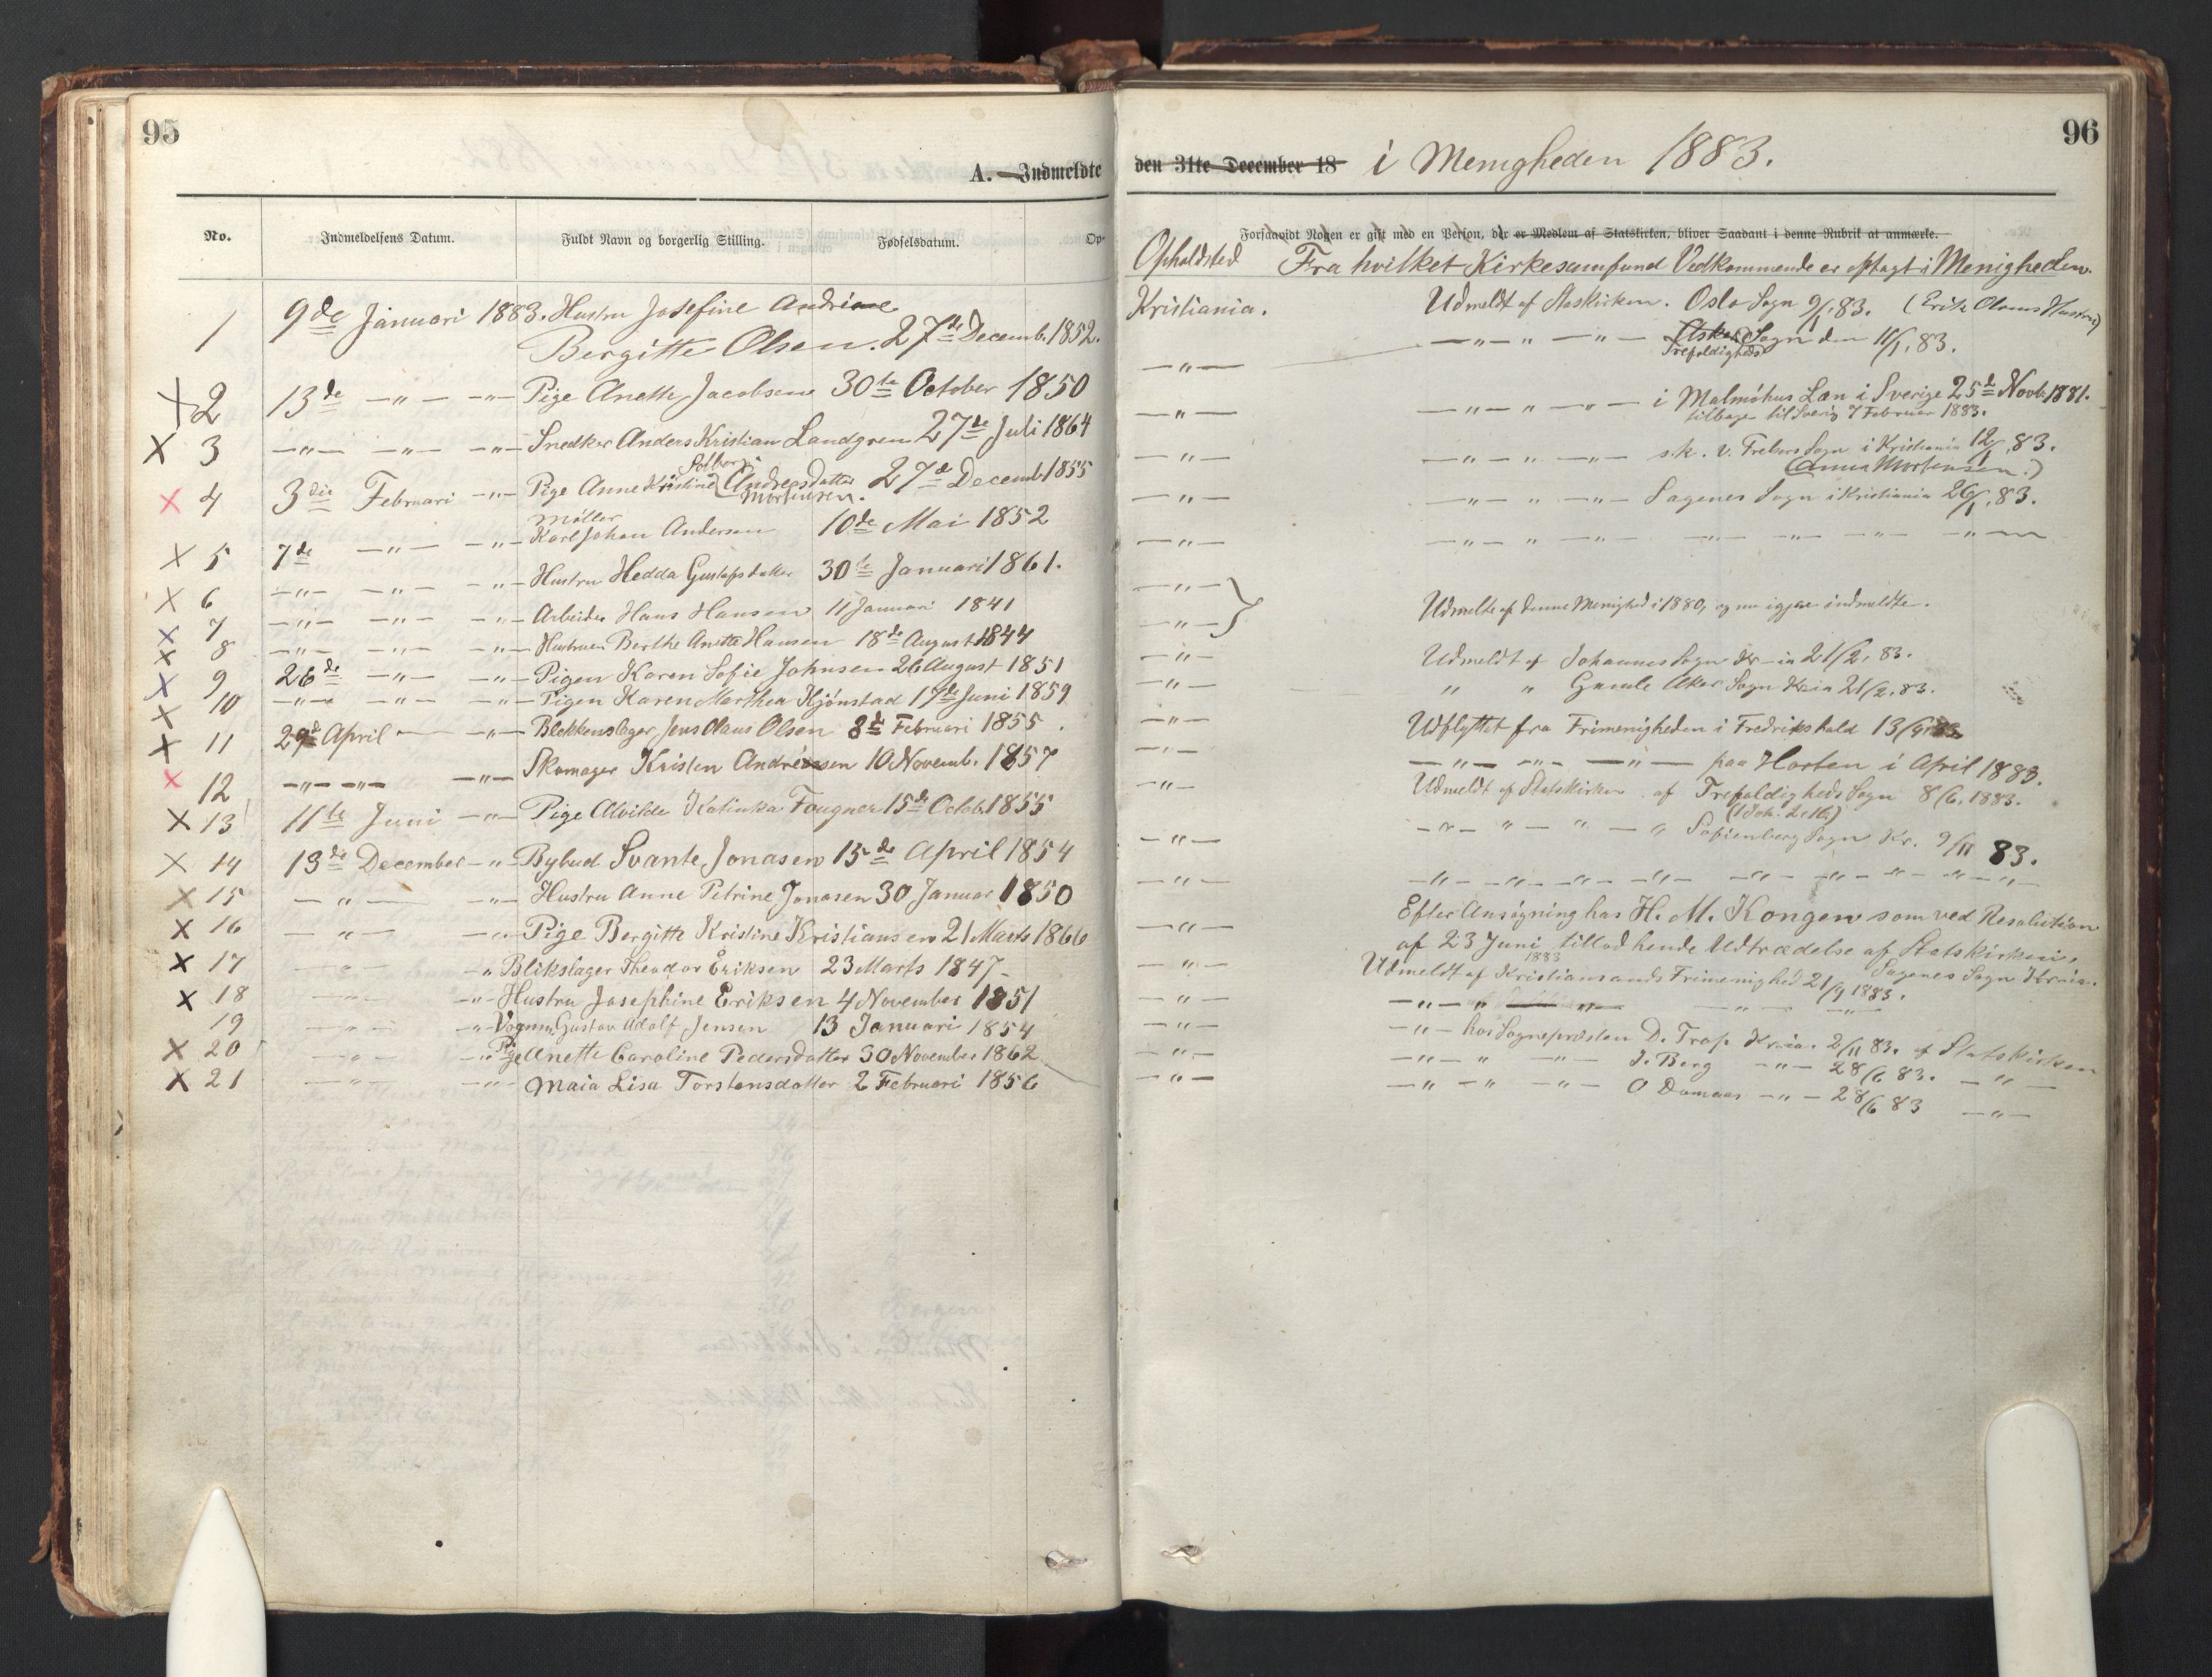 95
A. Indmeldte
No.
Indmeldelsens Datum.
Fuldt Navn og borgerlig Stilling.
Fødselsdatum.
Op-
1 9de Januari 1883. Hustru Josefine Andrine
Bergitte Olsen. 27de Decemb. 1852.
X 2 13de —"— —"— Pige Anette Jacobsen 30te October 1850
X 3 —"— —"— —"— Snedker Anders Kristian Landgren 27de Juli 1864
Solberg
X 4 3die Februari —"— Pige Anne Kristine (Andreas Datter 27de Decemb 1855
Mortensen.
Møller
X 5 7de —"— —"— Karl Johan Anderson 10de Mai 1852
X 6 —"— —"— —"— Hustru Hedda Gustafsdatter 30te Januari 1861.
X 7 —"— —"— —"— Arbeider Hans Hansen 11 Januari 1841
X 8 —"— —"— —"— Hustruen Berthe Anette Hansen 18de August 1844
X 9 26de —"— —"— Pigen Karen Sofie Johnsen 26 August 1851
X 10 —"— —"— —"— Pigen Karen Marthea Hjønstad 17de Juni 1859
X 11 29de April —"— Blekkenslager Jens Olaus Olsen 8de Februari 1855.
X 12 —"— —"— —"— Skomager Kristen Andréasen 10 Novemb. 1857
X 13 11te Juni —"— Pige Alvilde Katinka Fougner 15de Octob. 1855
X 14 13de December —"— Bybud Svante Jonasen 15de April 1854
X 15 —"— —"— Hustru Anne Petrine Jonasen 30 Januar 1850
X 16 —"— —"— Pige Bergitte Kristine Kristiansen 21 Marts 1866
X 17 —"— —"— Blikslager Theodor Eriksen 23 Marts 1847—
X 18 —"— —"— Hustru Josephine Eriksen 4 November 1851
19 —"— —"— Vognm. Gustav Adolf Jensen 13 Januari 1854
X 20 —"— —"— Pige Anette Caroline Pedersdatter 30 November 1862
X 21 —"— —"— Maia Lisa Torstensdatter 2 Februari 1856
96
den 31te December 18 i Menigheden 1883.
Forsaavidt Nogen er gift med en Person, der er Medlem af Statskirken, bliver Saadant i denne Rubrik at anmærke.
Opholdsted Fra hvilket Kirkesamfund Vedkommende er optagt i Menigheden.
Kristiania. Udmeldt af Staskirken. Oslo Sogn 9/1.83. (Erik Olsens Hustru)
—"— —"— " —"— Asker Sogn den 11/1.83.
Trefoldigheds
—"— —"— " —"— i Malmöhus Læn i Sverige 25de Novb. 1881.
tilbage til Sverig 7 Februar 1883.
—"— —"— " —"— s.k. v. Frelsers Sogn i Kristiania 12/1.83.
(Anna Mortensen.)
—"— —"— " —"— Sagenes Sogn i Kristiania 26/1.83.
—"— —"— " —"— —"— —"— —"— —"—
—"— } Udmeldte af denne Menighed i 1880, og nu igjen indmeldte.
—"—
—"— Udmeldt af Johannes Sogn Kr-ia 21/2.83.
—"— " " Gamle Aker Sogn Kria 21/2.83.
—"— Udflyttet fra Frimenigheden i Fredrikshald 13/9.82
—"— —"— —"— —"— paa Horten i April 1883.
—"— Udmeldt af Statskirken af Trefoldigheds Sogn 8/6.1883.
—"— —"— " —"— " Sofienberg Sogn Kr. 9/11 83.
—"— —"— —"— —"— —"— —"— —"— —"— —"—
—"— Efter Ansøgning har H. M. Kongen som ved Resolution
af 23 Juni tillad hende Udtrædelse af Statskirken.
1883 Sagenes Sogn Kria.
—"— Udmeldt af Kristiansands Frimenighed 21/9 1883.
—"— —"— " —"— —"— —"—
—"— —"— hos Sognepræsten D. Trap Kria. 2/11 83. af Statskirken
—"— —"— " —"— J. Berg —"— 28/6 83. —"—
—"— —"— —"— —"— O Damaas —"— 28/6 83 —"—